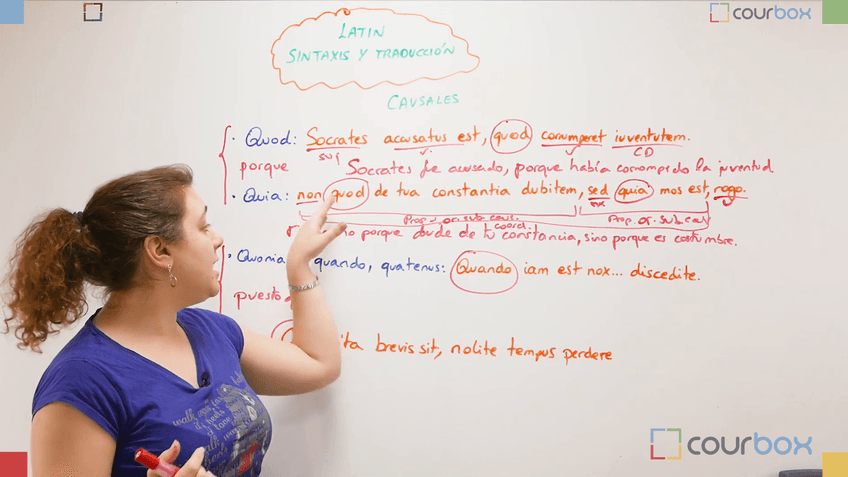 courbox
LATIN
SINTAXIS Y TRADUCCIÓN
CAUSALES
· Quod: Socrates accusatus est, quod corrumperet iuventutem.
suj v. v CD
porque Socrates fue acusado, porque había corrompido la juventud.
· Quia: non quod de tua constantia dubitem, sed quia mos est, rogo.
nx v
Prop. or. sub. caus. Prop. or. sub. caus
coord.
no porque dude de tu constancia, sino porque es costumbre.
quando, quatenus: Quando iam est nox... discedite.
puesto
brevis sit, nolite tempus perdere
courbox